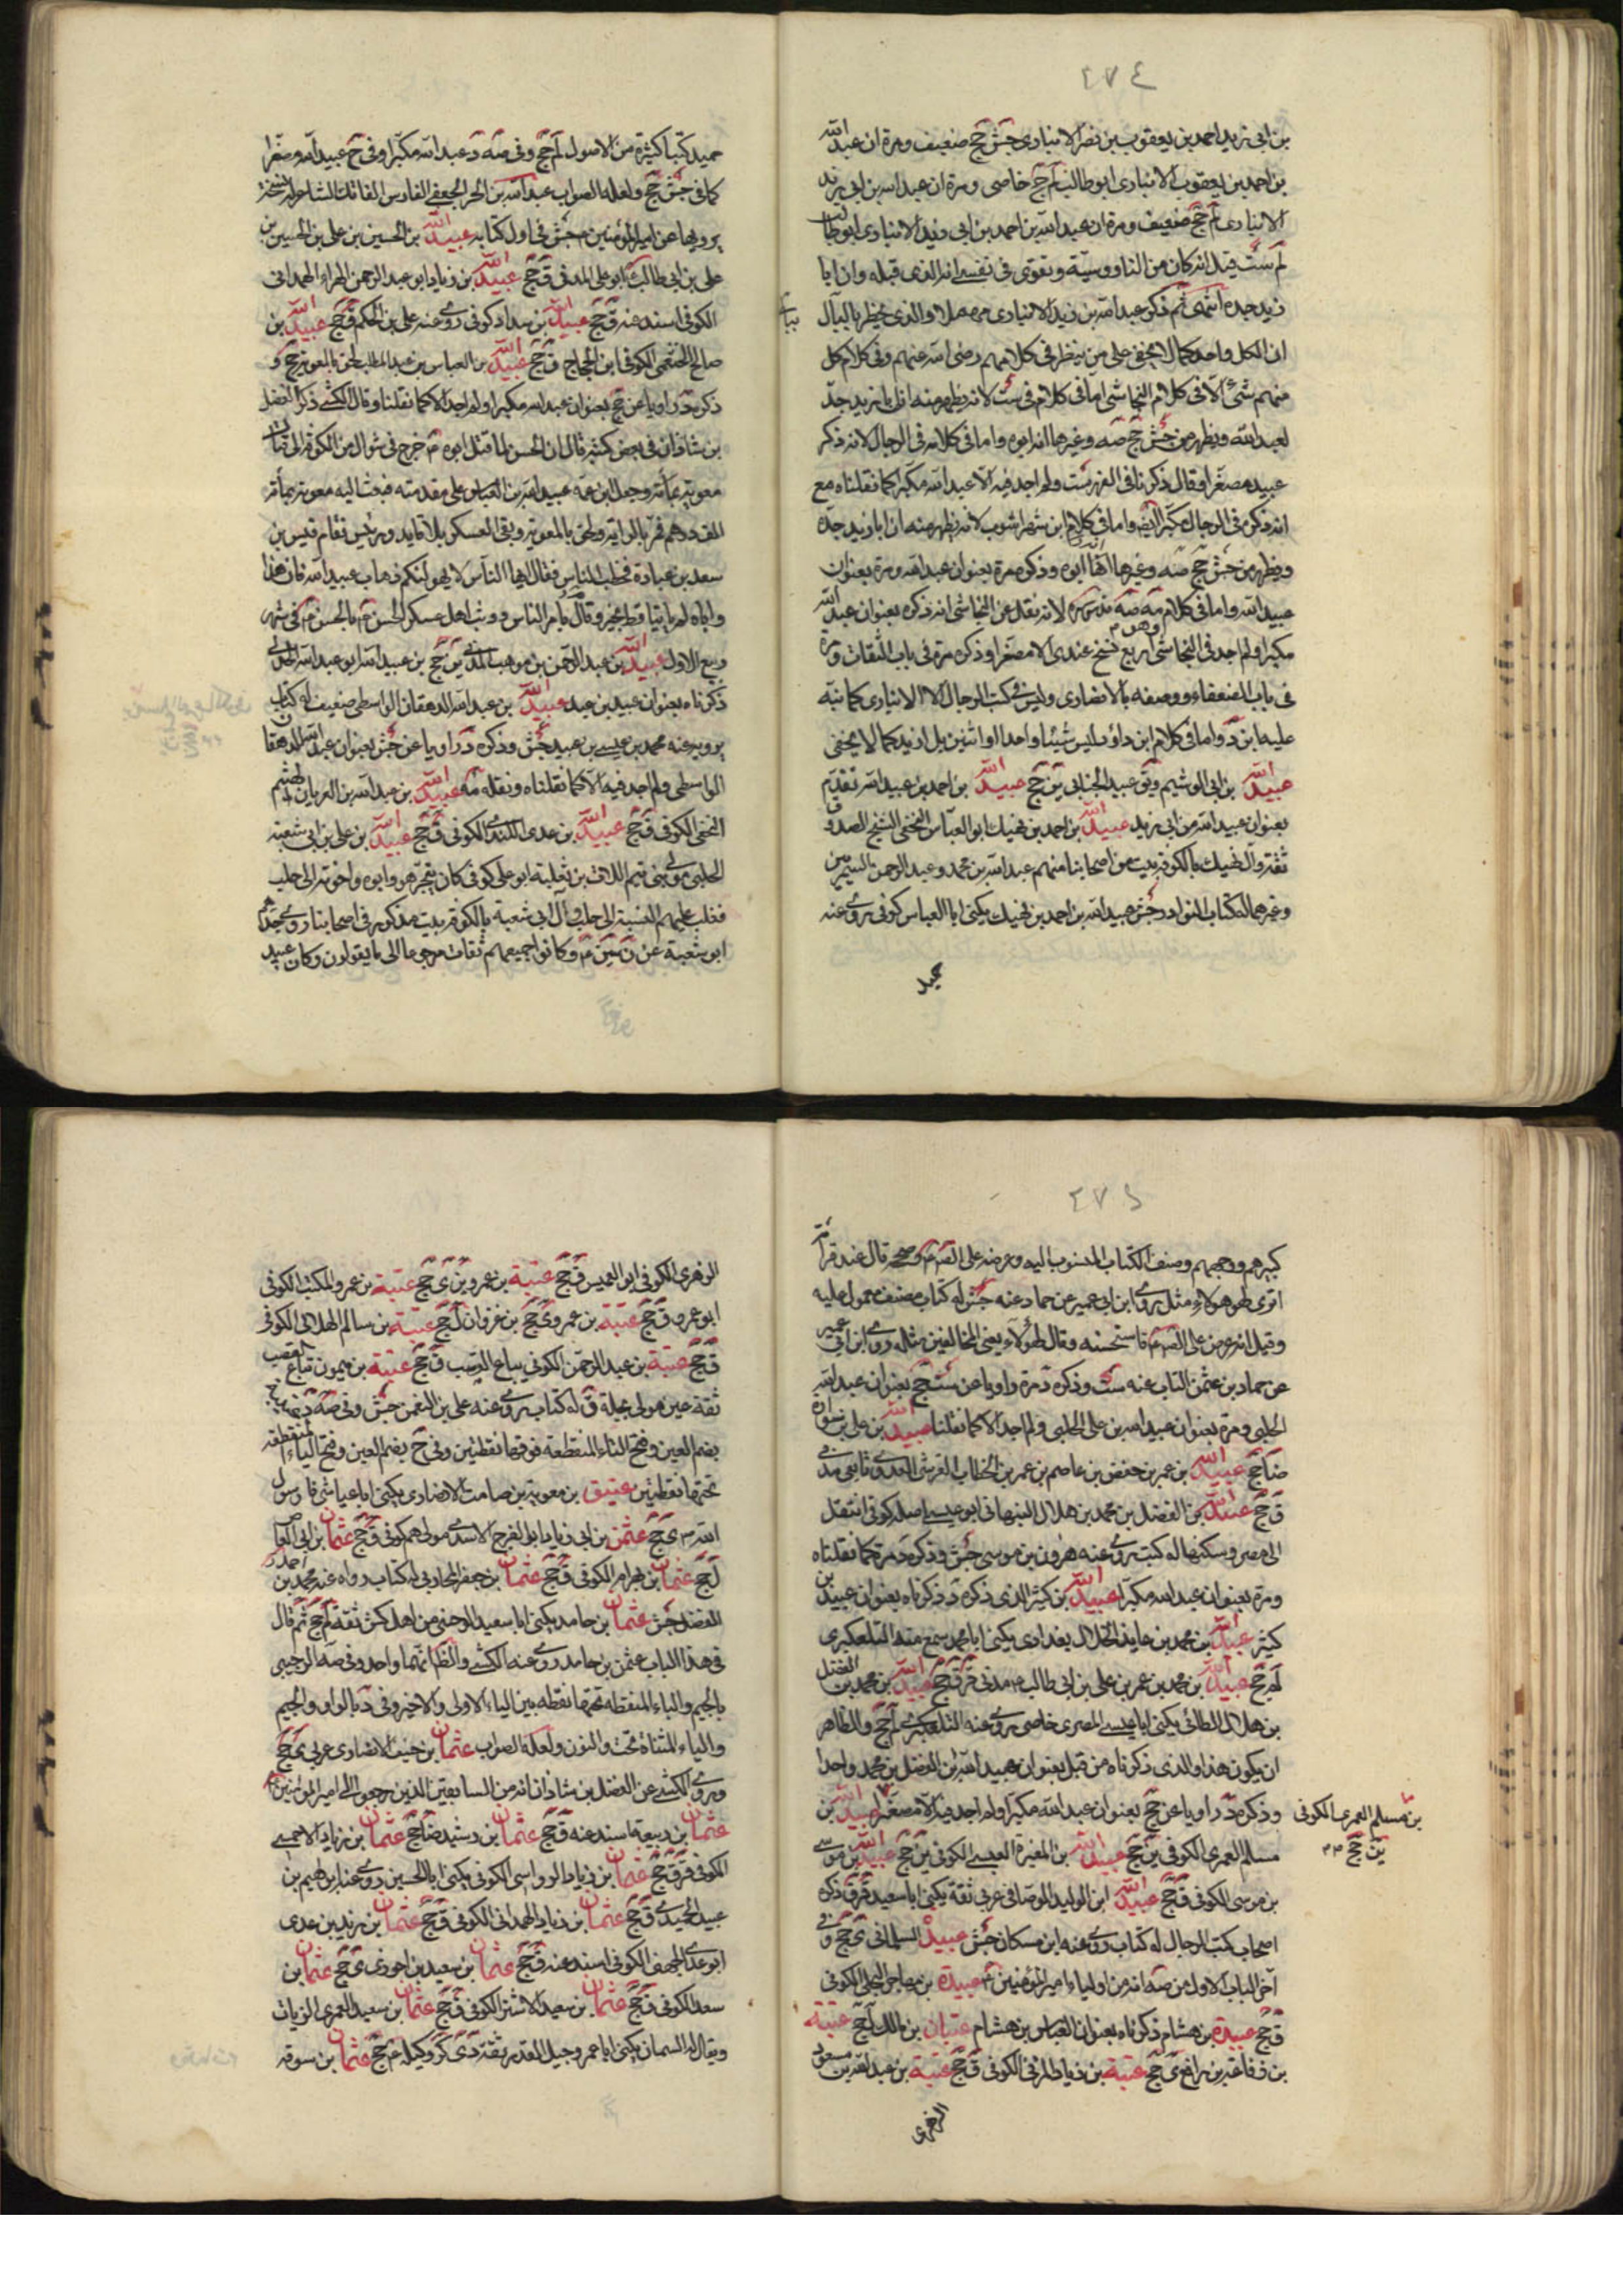 ٢٧٤
بن ابی زید احمد بن یعقوب بن نصر الانباری جش جخ ضعیف ومرة ان عبد الله
بن احمد بن یعقوب الانباری ابو طالب لم جخ خاصی ومرة ان عبد الله بن ابی زید
الانباری لم جخ ضعیف ومرة ان عبد الله بن احمد بن ابی زید الانباری ابو طالب
لم ست قیل انه کان من الناووسیة ویقوی فی نفسی انه الذی قبله وان ابا
زید جده انتهی ثم ذکر عبد الله بن زید الانباری مهملا والذی یخطر بالبال
ان الکل واحد کما لا یخفی علی من ینظر فی کلامهم رضی الله عنهم وفی کلام کل
منهم شیء الا فی کلام النجاشی اما فی کلام فی ست لانه یظهر منه ان ابا زید جد
لعبد الله ویظهر من جش جخ صه وغیرها انه ابوه واما فی کلامه فی الرجال لانه ذکر
عبید مصغرا وقال ذکرنا فی الفهرست ولم اجد فیه الا عبد الله مکبرا کما نقلناه مع
انه ذکره فی الرجال مکبرا ایضا واما فی کلام ابن شهراشوب لانه یظهر منه ان ابا زید جده
ویظهر من جش جخ صه وغیرها انه ابوه وذکره مرة بعنوان عبد الله ومرة بعنوان
عبید الله واما فی کلام صه لانه نقل عن النجاشی انه ذکره بعنوان عبد الله
مکبرا ولم اجد فی النجاشی وهو اربع نسخ عندی الا مصغرا وذکره مرة فی باب الثقات ومرة
فی باب الضعفاء ووصفه بالانصاری ولیس فی کتب الرجال الا الانباری کما نبه
علیه ابن د واما فی کلام ابن داود لیس شیئا واحدا او اثنین بل ازید کما لا یخفی
عبید الله بن ابی الوشیم وفی ق عبید الجنابی ین جخ عبید الله بن احمد بن عبید الله تقدم
بعنوان عبید الله بن ابی زید عبید الله بن احمد بن نهیك ابو العباس النخعی الشیخ الصدوق
ثقة وآل نهیك بالکوفة بیت من اصحابنا منهم عبد الله بن محمد وعبد الرحمن السمریین
وغیرهما له کتاب النوادر جش عبید الله بن احمد بن نهیك یکنی ابا العباس کوفی روی عنه
حمید
حمید کتبا کثیرة من الاصول لم جخ وفی صه د عبد الله مکبرا وفی ح عبید الله مصغرا
کما فی جش جخ ولعله الصواب عبد الله بن الحر الجعفی الفارس الفاتك الشاعر له نسخة
یرویها عن امیر المؤمنین جش فی اول کتابه عبید الله بن الحسین بن علی بن الحسین بن
علی بن ابی طالب ابو علی المدنی ق جخ عبید الله بن زیاد ابو عبد الرحمن الهمدانی
الکوفی اسند عنه ق جخ عبید الله بن سداد کوفی روی عنه علی بن الحکم ق جخ عبید الله بن
صالح الخثعمی الکوفی ابن الحجاج ق جخ عبید الله بن العباس بن عبد المطلب لحق بالمعویة جخ و
ذکره د راویا عن جخ بعنوان عبد الله مکبرا ولم اجد الا کما نقلنا وقال الکشی ذکر الفضل
بن شاذان فی بعض کتبه قال ان الحسن لما قتل ابوه خرج فی شوال من الکوفة الی قتال
معویة وجعل ابن عمه عبید الله بن العباس علی مقدمته فبعث الیه معویة بمائة
الف درهم فمر بالرایة ولحق بالمعویة وبقی العسکر بلا قاید ورئیس فقام قیس بن
سعد بن عبادة فخطب الناس فقال ایها الناس لا یهولنکم ذهاب عبید الله فان هذا
واباه لم یاتیا قط بخیر وقام بامر الناس ووثب اهل عسکر الحسن بالحسن فی شهر
ربیع الاول عبید الله بن عبد الرحمن بن موهب المدنی ین جخ بن عبید الله ابو عبد الله الجدلی
ذکرناه بعنوان عبید بن عبد عبید الله بن عبد الله الدهقان الواسطی ضعیف له کتاب
یرویه عنه محمد بن عیسی بن عبید جش وذکره د راویا عن جش بعنوان عبد الله الدهقان
الواسطی ولم اجد فیه الا کما نقلناه ونقله صه عبید الله بن عبد الله بن العریان الهیثم
النخعی الکوفی ق جخ عبید الله بن عدی الکندی الکوفی ق جخ عبید الله بن علی بن ابی شعبة
الحلبی مولی بنی تیم اللات بن ثعلبة ابو علی کوفی کان یتجر هو وابوه واخوته الی حلب
فغلب علیهم النسبة الی حلب وآل ابی شعبة بالکوفة بیت مذکور فی اصحابنا روی جدهم
ابو شعبة عن ن سین وکانوا جمیعهم ثقات مرجوعا الی ما یقولون وکان عبید
٢٧٥
کبیرهم ووجههم وصنف الکتاب المنسوب الیه وعرضه علی الصادق وصححه قال عند قراءته
اتری لهؤلاء مثل روی ابن ابی عمیر عن حماد عنه جش له کتاب مصنف معمول علیه
وقیل انه عرض علی الصادق فاستحسنه وقال لهؤلاء یعنی المخالفین مثله روی ابن ابی عمیر
عن حماد بن عثمن الناب عنه ست وذکره د مرة راویا عن ست جخ بعنوان عبد الله
الحلبی ومرة بعنوان عبد الله بن علی الحلبی ولم اجد الا کما نقلنا عبید الله بن علی بن سوادة
ضا جخ عبید الله بن عمر بن حفص بن عاصم بن عمر بن الخطاب القرشی العدوی تابعی مدنی
ق جخ عبید الله بن الفضل بن محمد بن هلال النبهانی ابو عیسی اصله کوفی انتقل
الی مصر وسکنها له کتب روی عنه هرون بن موسی جش وذکره د مرة کما نقلناه
ومرة بعنوان عبد الله مکبرا عبید الله بن کثیر الذی ذکره د ذکرناه بعنوان عبید بن
کثیر عبید الله بن محمد بن عاید الخلال بغدادی یکنی ابا محمد سمع منه التلعکبری
لم جخ عبید الله بن محمد بن عمر بن علی بن ابی طالب مدنی قر ق جخ عبید الله بن محمد بن الفضل
بن هلال الطائی یکنی ابا عیسی المصری خاصی روی عنه التلعکبری لم جخ والظاهر
ان یکون هذا والذی ذکرناه من قبل بعنوان عبید الله بن الفضل بن محمد واحدا
وذکره د راویا عن جخ بعنوان عبد الله مکبرا ولم اجد فیه الا مصغرا عبید الله بن
مسلم العمری الکوفی ین جخ عبید الله بن المغیرة العبسی الکوفی ین جخ عبید الله بن موسی
بن موسی الکوفی ق جخ عبید الله ابن الولید الوصافی عربی ثقة یکنی ابا سعید قر ق ذکره
اصحاب کتب الرجال له کتاب روی عنه ابن مسکان جش عبید السلمانی ی جخ وفی
آخر الباب الاول من صه انه من اولیاء امیر المؤمنین عبیدة بن مهاجر البجلی الکوفی
ق جخ عبیدة بن هشام ذکرناه بعنوان العباس بن هشام عتبان بن مالك ل جخ عتبة
بن رفاعة بن رافع ی جخ عتبة بن زیاد المزنی الکوفی ق جخ عتبة بن عبد الله بن مسعود
بن مسلم العمری الکوفی
ین جخ
الزهری
الزهری الکوفی ابو العمیس ق جخ عتبة بن عمرو ین ی جخ عتبة بن عمرو المکتب الکوفی
ابو عمرو ق جخ عتبة بن عمرو ی جخ بن غزوان ل جخ عتبة بن سالم الهلالی الکوفی
ق جخ عتبة بن عبد الرحمن الکوفی بیاع القصب ق جخ عتیبة بن میمون بیاع القصب
ثقة عین مولی بجیلة ق له کتاب روی عنه علی بن النعمن جش وفی صه د
بضم العین وفتح التاء المنقطعة فوقها نقطتین وفی ح بضم العین وفتح الیاء المنقطعة
تحتها نقطتین عتیق بن معویة بن صامت الانصاری یکنی ابا عیاش فارس رسول
الله ی جخ عثمن بن ابی زیاد ابو الفرج الاسدی مولاهم کوفی ق جخ عثمان بن ابی العاص
ل جخ عثمان بن بهرام الکوفی ق جخ عثمان بن جعفر المحاربی له کتاب رواه عنه محمد بن احمد
الفضل جش عثمان بن حامد یکنی ابا سعید الوجینی من اهل کش ثقة لم جخ ثم قال
فی هذا الباب عثمن بن حامد روی عنه الکشی والظ انهما واحد وفی صه الرجیبی
بالجیم والباء المنقطة تحتها نقطة بین الیاء الاولی والاخیر وفی د بالواو والجیم
والیاء المثناة تحت والنون ولعله الصواب عثمان بن حنیف الانصاری عربی ی جخ
وروی الکشی عن الفضل بن شاذان انه من السابقین الذین رجعوا الی امیر المؤمنین
عثمان بن ربیعة اسند عنه ق جخ عثمان بن رشید ضا جخ عثمان بن زیاد الاحمسی
الکوفی قر ق جخ عثمان بن زیاد الرواسی الکوفی یکنی ابا الحسین روی عنه ابراهیم بن
عبد الحمید ق جخ عثمان بن زیاد الهمدانی الکوفی ق جخ عثمان بن زید بن عدی
ابو عدی الجهنی الکوفی اسند عنه ق جخ عثمان بن سعید بن احوزی ی جخ عثمان بن
سعد الکوفی ق جخ عثمان بن سعید الاشتر الکوفی ق جخ عثمان بن سعید العمری الزیات
ویقال له السمان یکنی ابا عمرو جلیل القدر ثقة دی کر وکیله جخ عثمان بن سوقة